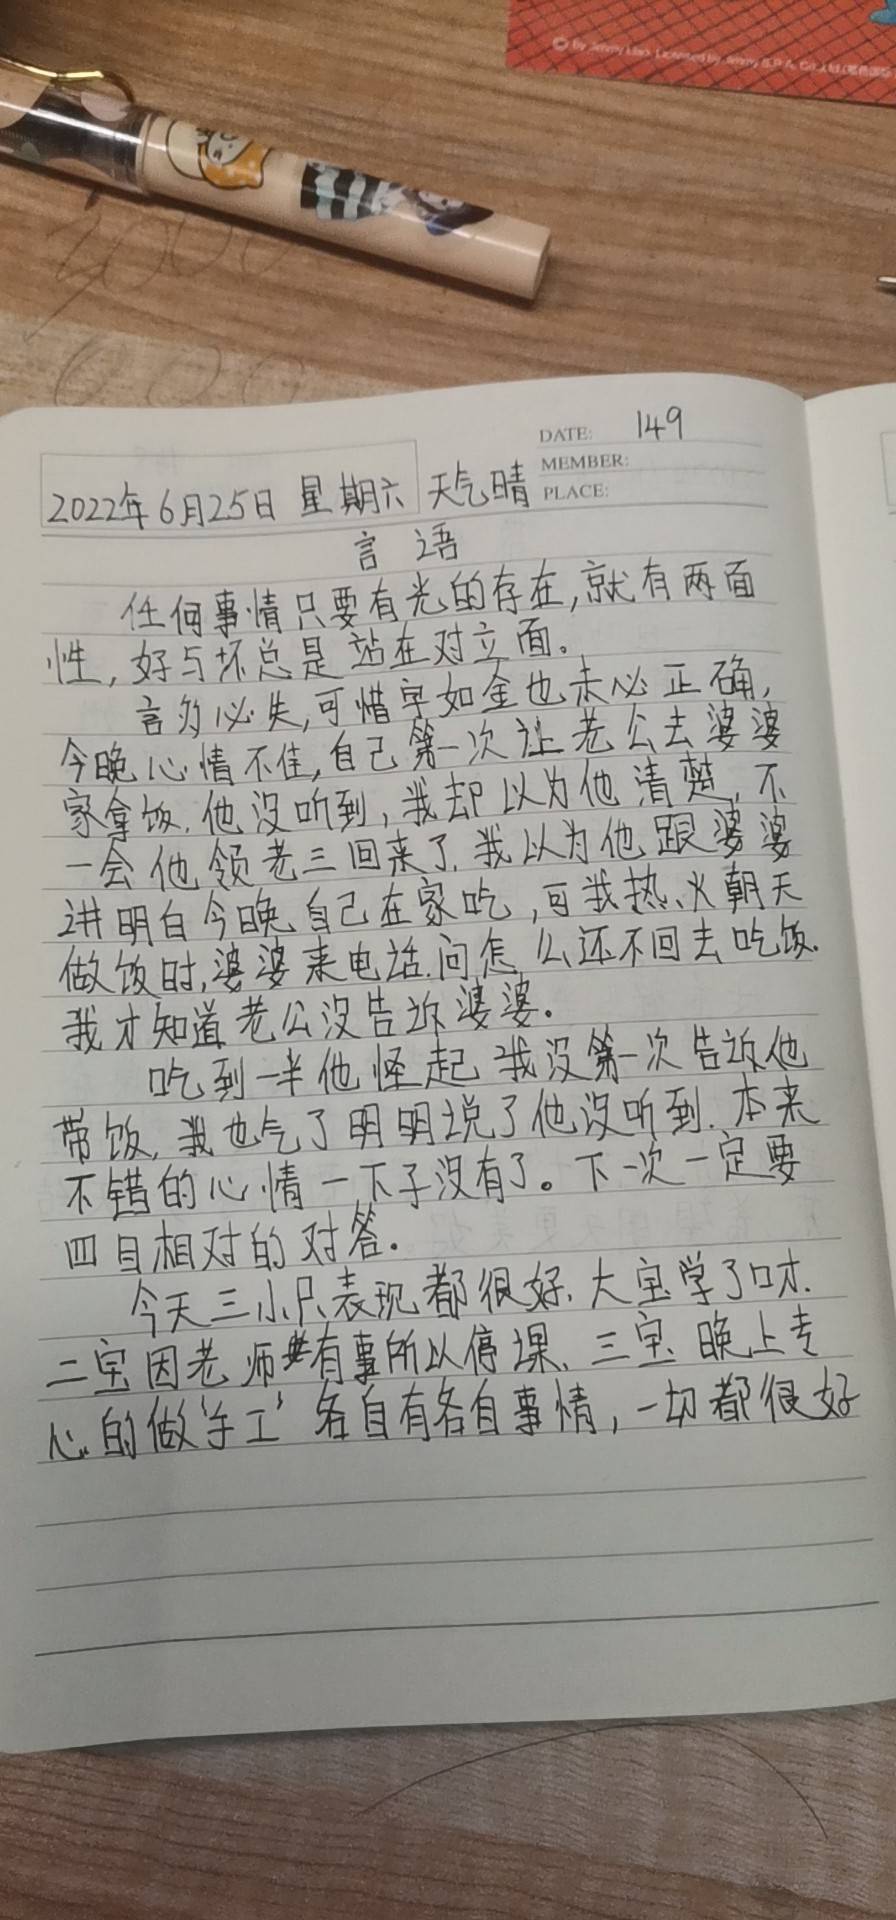 DATE: 149
MEMBER:
PLACE:
2022年6月25日 星期六 天气晴
言语
任何事情只要有光的存在,就有两面
性,好与坏总是站在对立面。
言多必失,可惜字如金也未必正确,
今晚心情不佳,自己第一次让老公去婆婆
家拿饭.他没听到,我却以为他清楚,不
一会他领老三回来了.我以为他跟婆婆
讲明白今晚自己在家吃,可我热火朝天
做饭时,婆婆来电话.问怎么还不回去吃饭.
我才知道老公没告诉婆婆。
吃到一半他怪起我没第一次告诉他
带饭,我也气了明明说了他没听到.本来
不错的心情一下子没有了。下一次一定要
四目相对的对答.
今天三小只表现都很好.大宝学了口才.
二宝因老师有事所以停课.三宝晚上专
心的做'手工'各自有各自事情,一切都很好